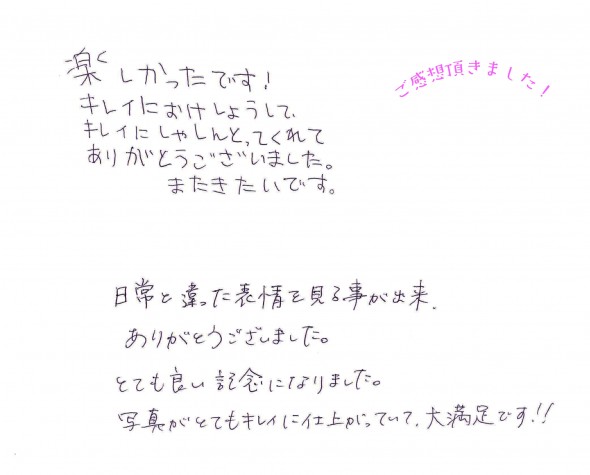 楽しかったです!
キレイにおけしょうして、
キレイにしゃしんとってくれて
ありがとうございました。
またきたいです。
ご感想頂きました!
日常と違った表情を見る事が出来、
ありがとうございました。
とても良い記念になりました。
写真がとてもキレイに仕上がっていて、大満足です!!